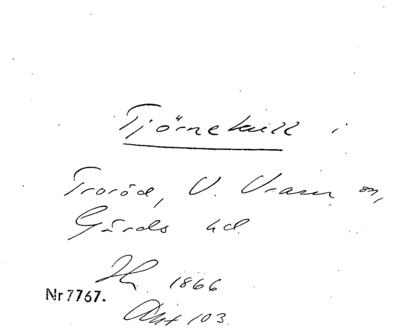 Tjörnekull i
Troröd, V. Vram sn,
Gärds hd.
1866
Nr 7767.
Akt 103